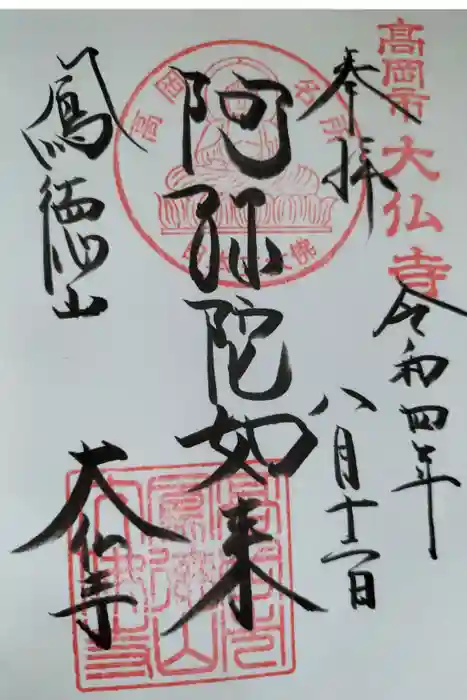 高岡市 大仏寺
奉拝
令和四年
八月十二日
阿弥陀如来
鳳徳山
大仏寺
高岡名所